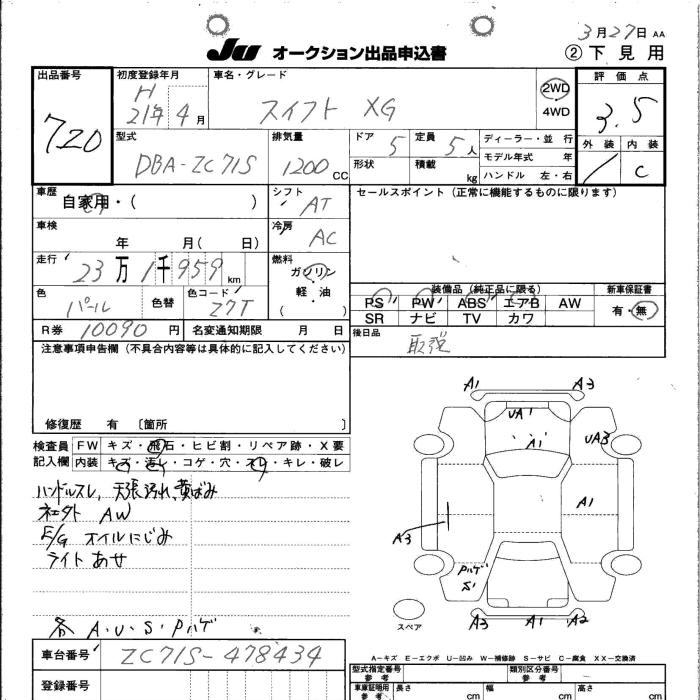 3月27日 AA
JU オークション出品申込書 ② 下見用
出品番号 720
初度登録年月 H 21年4月
車名・グレード スイフト XG
2WD
4WD
評価点 3.5
外装 内装 C
型式 DBA-ZC71S
排気量 1200 CC
ドア 5
定員 5人
形状
積載 kg
ディーラー・並行
モデル年式 年
ハンドル 左・右
車歴 自家用・( )
シフト AT
セールスポイント(正常に機能するものに限ります)
車検 年 月( 日)
冷房 AC
走行 23万1千959km
燃料 ガソリン
軽・油
( )
色 パール
色替
色コード Z7T
装備品(純正品に限る)
PS PW ABS エアB AW
SR ナビ TV カワ
新車保証書
有・無
R券 10090円
名変通知期限 月 日
後日品 取説
注意事項申告欄(不具合内容等は具体的に記入してください)
修復歴 有 〔箇所 〕
検査員記入欄
FW キズ・飛石・ヒビ割・リペア跡・X要
内装 キズ・汚レ・コゲ・穴・スレ・キレ・破レ
ハンドルスレ、天張汚れ、黄ばみ
社外 AW
E/G オイルにじみ
ライトあせ
各 A・U・S・Pハゲ
A1 A3
UA1
A1
UA3
A1
A3
Pハゲ
S1
スペア
A3 A1 A2
A−キズ E−エクボ U−凹み W−補修跡 S−サビ C−腐食 XX−交換済
車台番号 ZC71S-478434
登録番号
型式指定番号 参考
類別区分番号 参考
車庫証明用 参考
長さ cm
幅 cm
高さ cm